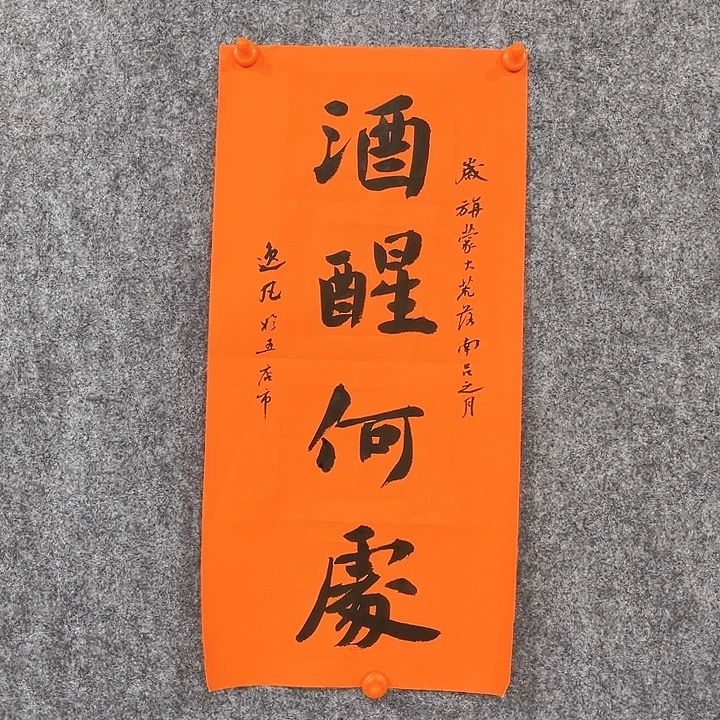 歲旃蒙大荒落南呂之月
酒醒何處
逸风於五店市